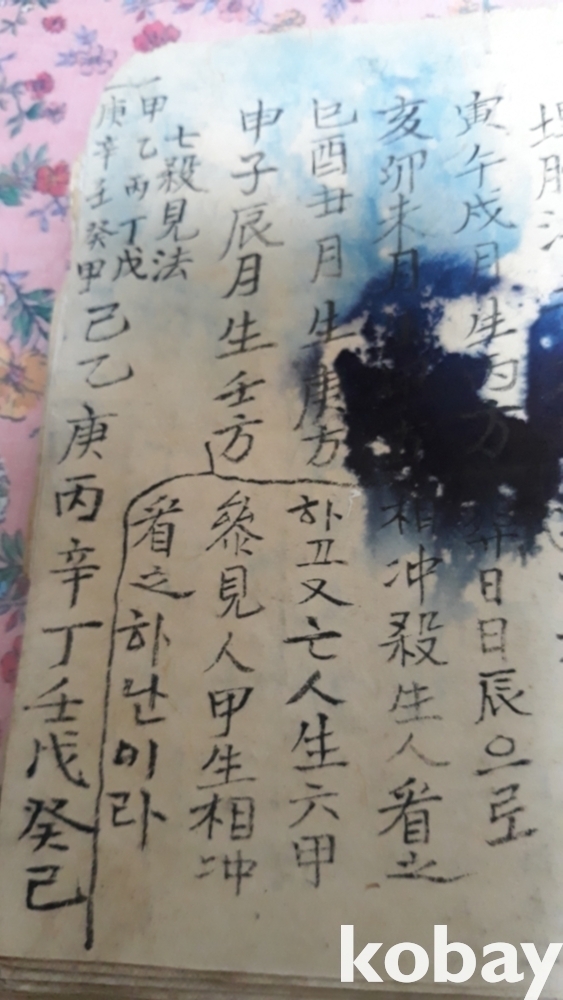 寅午戌月生丙方
日日辰으로
亥卯未月
相冲殺生人看之
巳酉丑月生庚方
하고又亡人生六甲
申子辰月生壬方
叅見人甲生相冲
看之하난이라
七殺見法
甲乙丙丁戊
庚辛壬癸甲
己乙庚丙辛丁壬戊癸己
kobay